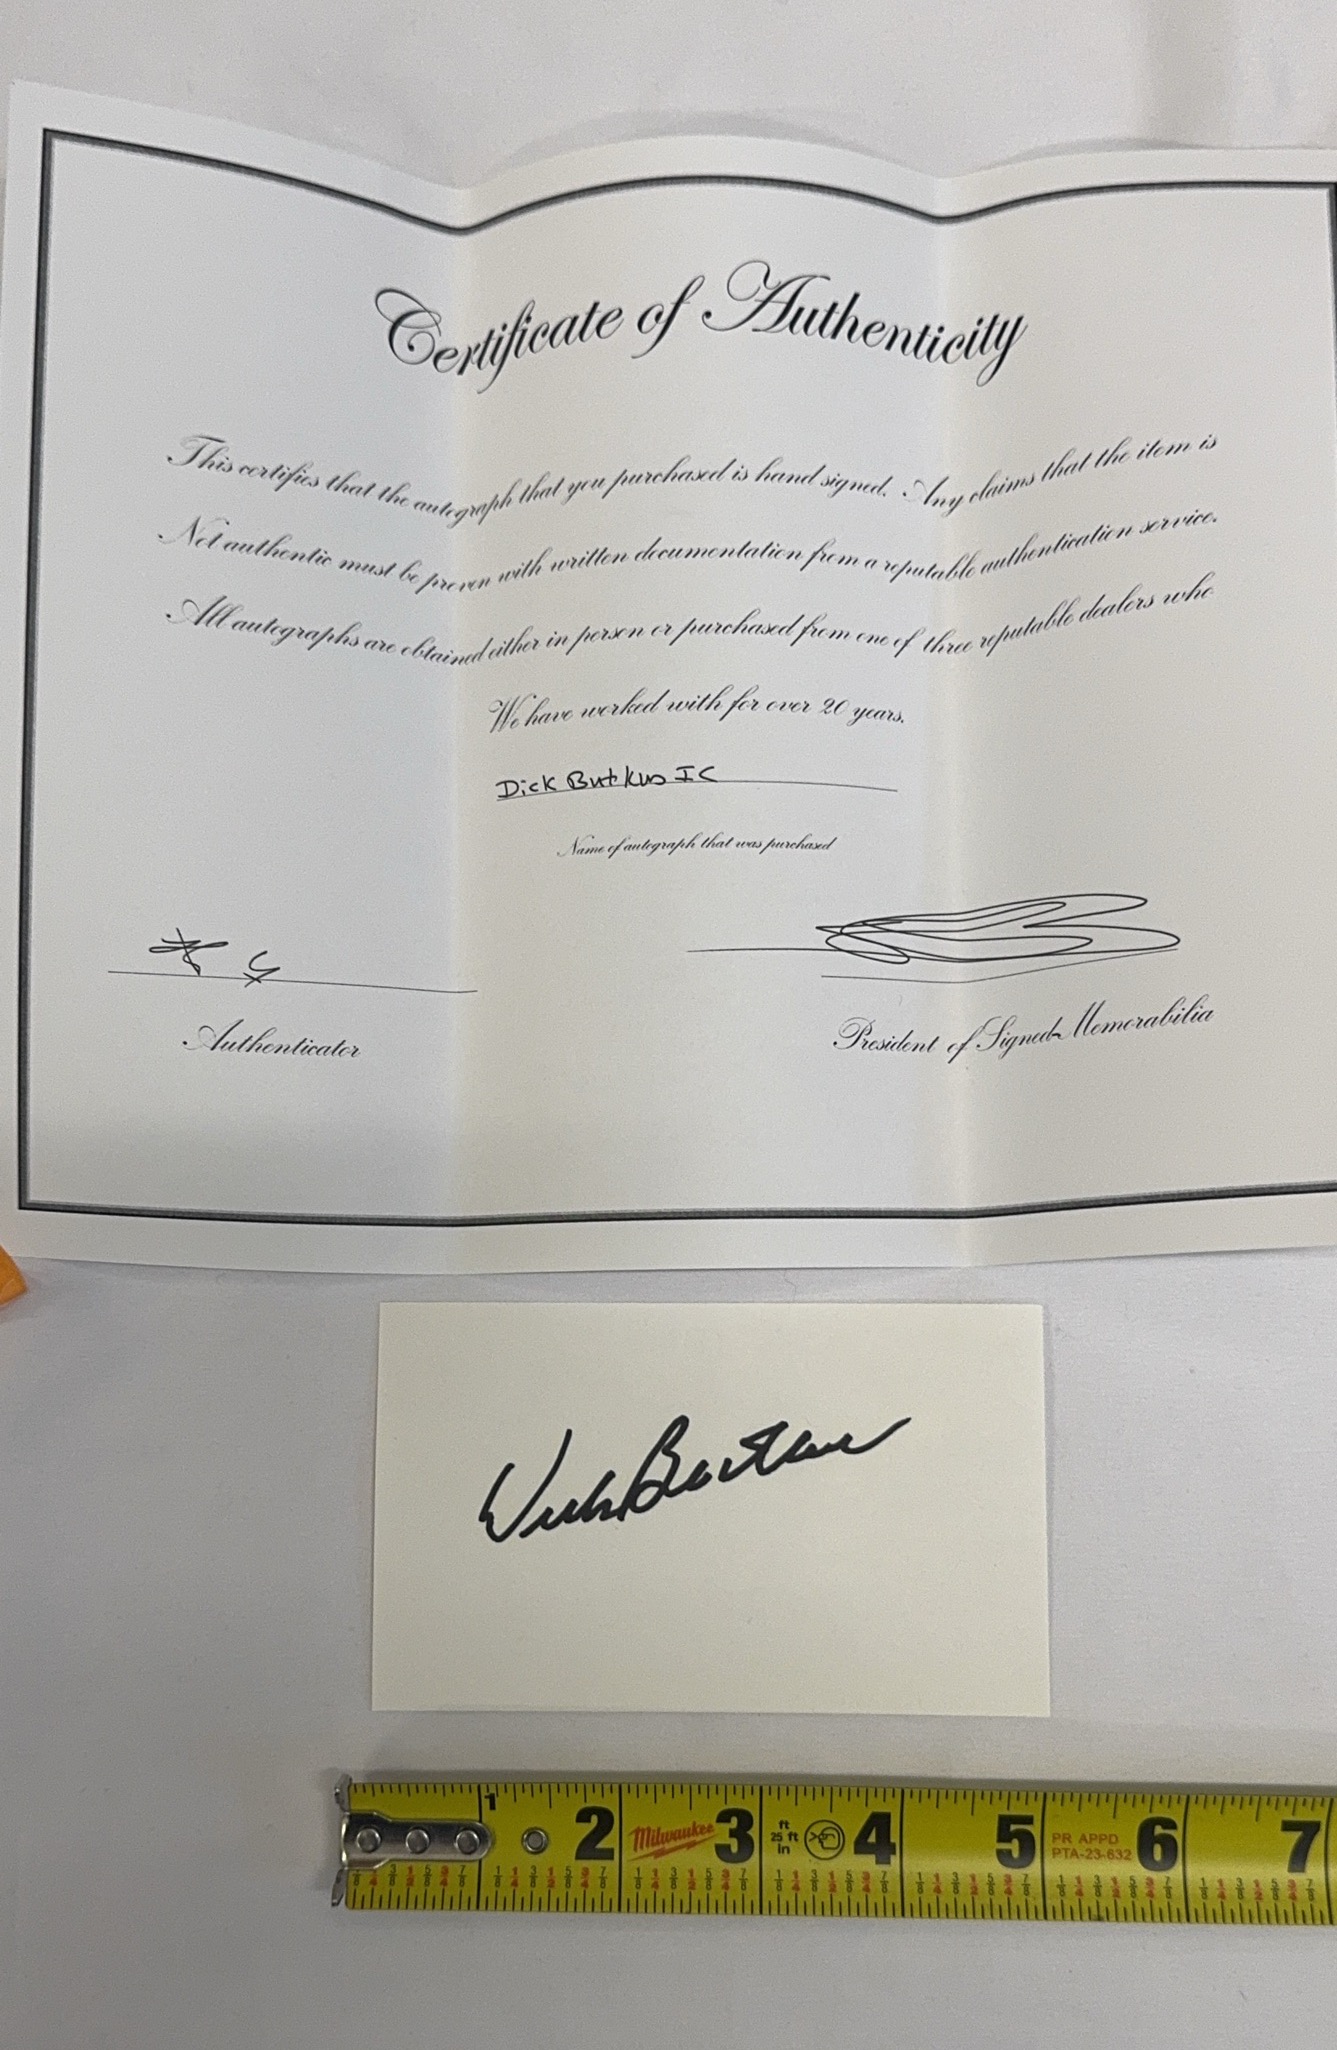 Certificate of Authenticity
This certifies that the autograph that you purchased is hand signed. Any claims that the item is
Not authentic must be proven with written documentation from a reputable authentication service.
All autographs are obtained either in person or purchased from one of three reputable dealers who
We have worked with for over 20 years.
Dick Butkus IC
Name of autograph that was purchased
Authenticator
President of Signed Memorabilia
Dick Butkus
1 2 Milwaukee 3 ft 25 ft in 4 5 PR APPD PTA-23-632 6 7